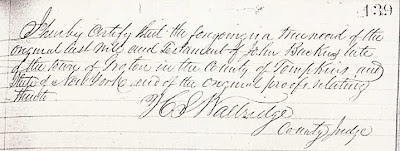 139
I hereby Certify that the foregoing is a true record of the
original last Will and Testament of John Backus late
of the town of Groton in the County of Tompkins and
State of New York and of the original proofs relating
thereto
H S Walbridge
County Judge